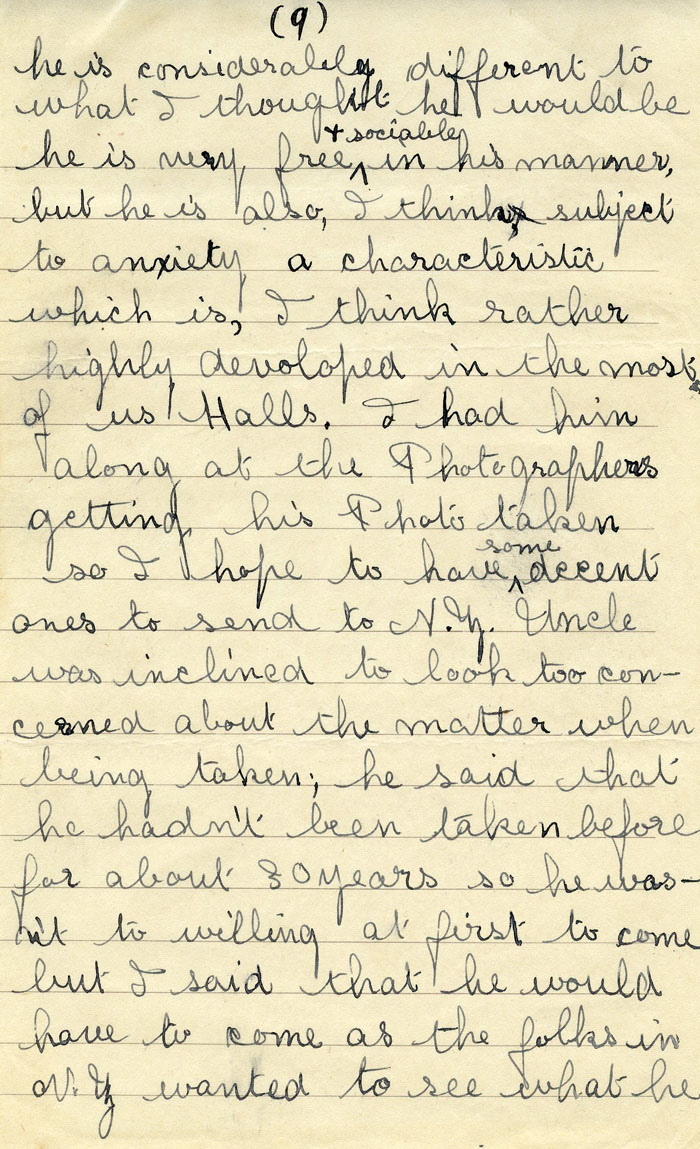 (9)
he is considerably different to
what I thought he would be
+ sociable
he is very free, in his manner,
but he is also, I think, subject
to anxiety a characteristic
which is, I think rather
highly devoloped in the most
of us Halls. I had him
along at the Photographers
getting his Photo taken
some
so I hope to have decent
ones to send to N.Z. Uncle
was inclined to look too con-
cerned about the matter when
being taken; he said that
he hadn't been taken before
for about 30 years so he was-
n't to willing at first to come
but I said that he would
have to come as the folks in
N.Z wanted to see what he